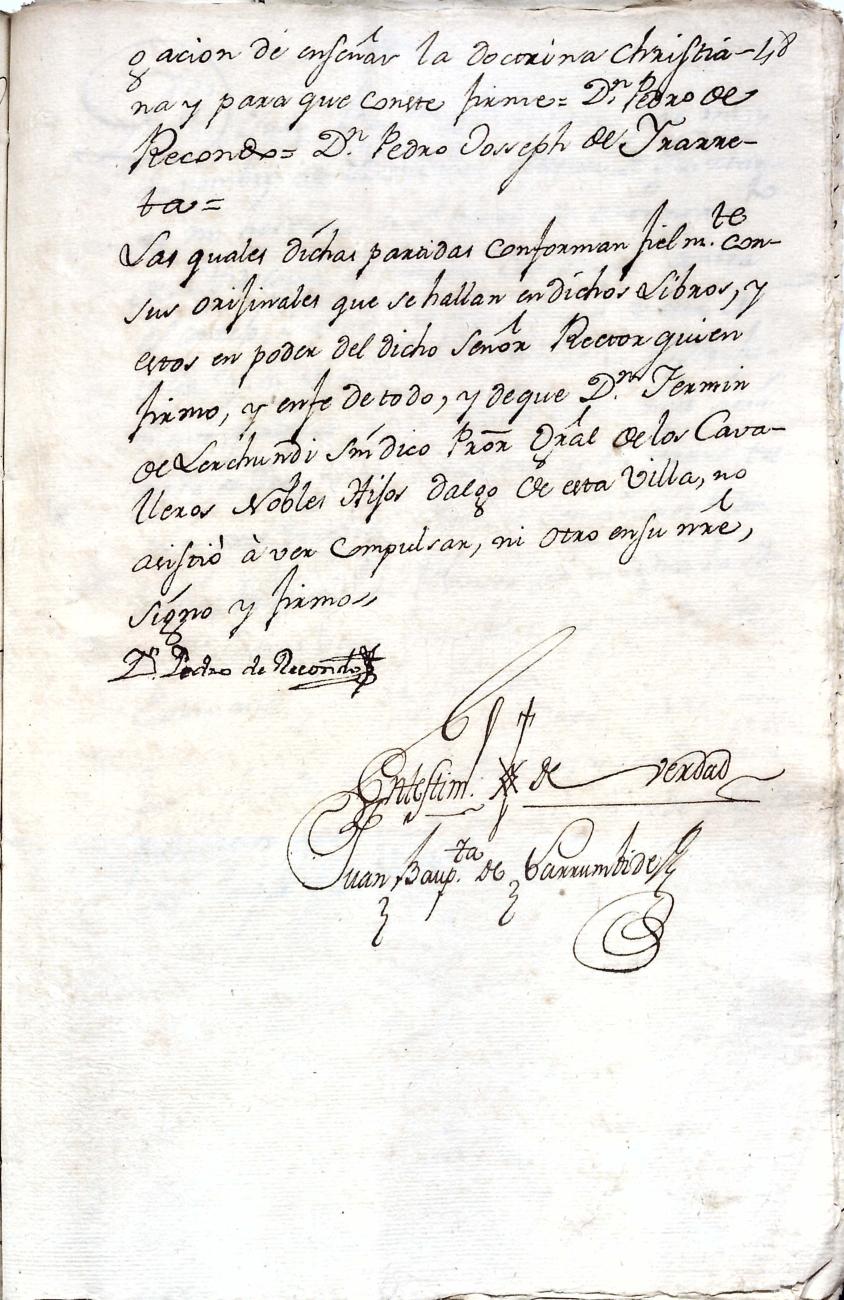 gacion de enseñar la doctrina Christia- 48
na y para que conste firme= Dn. Pedro de
Recondo= Dn. Pedro Josseph de Yrarre-
ta=
Las quales dichas partidas conforman fielm.te con-
sus orijinales que se hallan en dichos Libros, y
estos en poder del dicho señor Rector quien
firmo, y enfe de todo, y de que Dn. Fermin
de Lerchundi sindico Pror Gral de los Cava-
lleros Nobles Hijos dalgo de esta Villa, no
asistió à ver compulsar, ni otro ensu nre,
signo y firmo
Dn. Pedro de Recondo
Entestim.o de verdad
Juan Baup.ta de Larrumbide